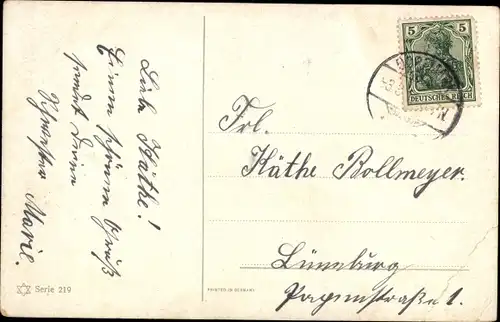 Liebe Käthe!
Einen schönen Gruß
sendet Deine
Schwester Marie.
Serie 219
PRINTED IN GERMANY
5 5
DEUTSCHES REICH
Frl.
Käthe Bollmeyer.
Lüneburg
Pagenstraße 1.